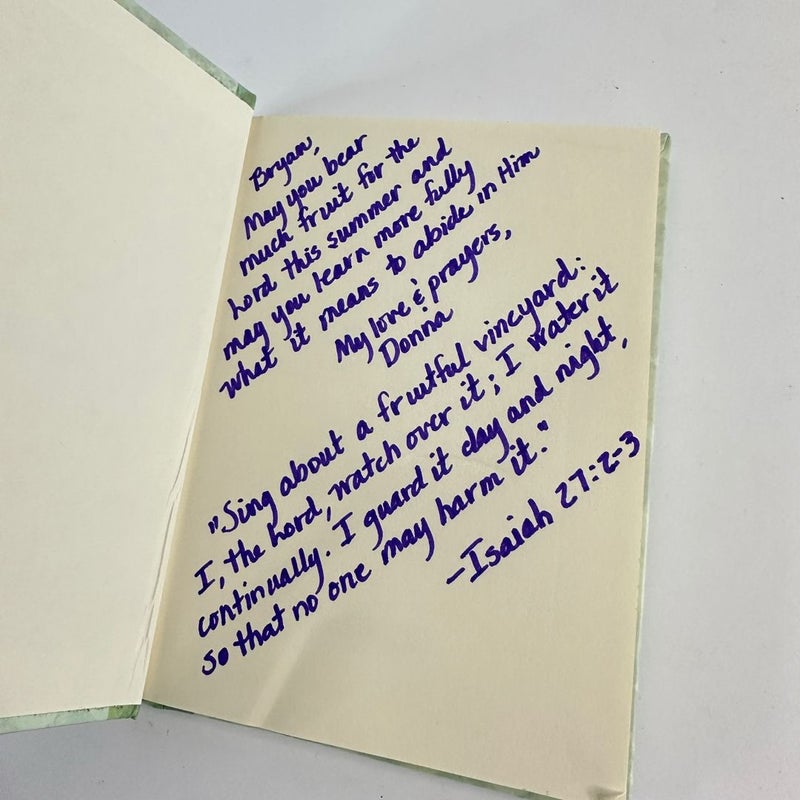 Bryan,
May you bear
much fruit for the
Lord this summer and
may you learn more fully
what it means to abide in Him
My love & prayers,
Donna
"Sing about a fruitful vineyard:
I, the Lord, watch over it; I water it
continually. I guard it day and night,
so that no one may harm it."
-Isaiah 27:2-3